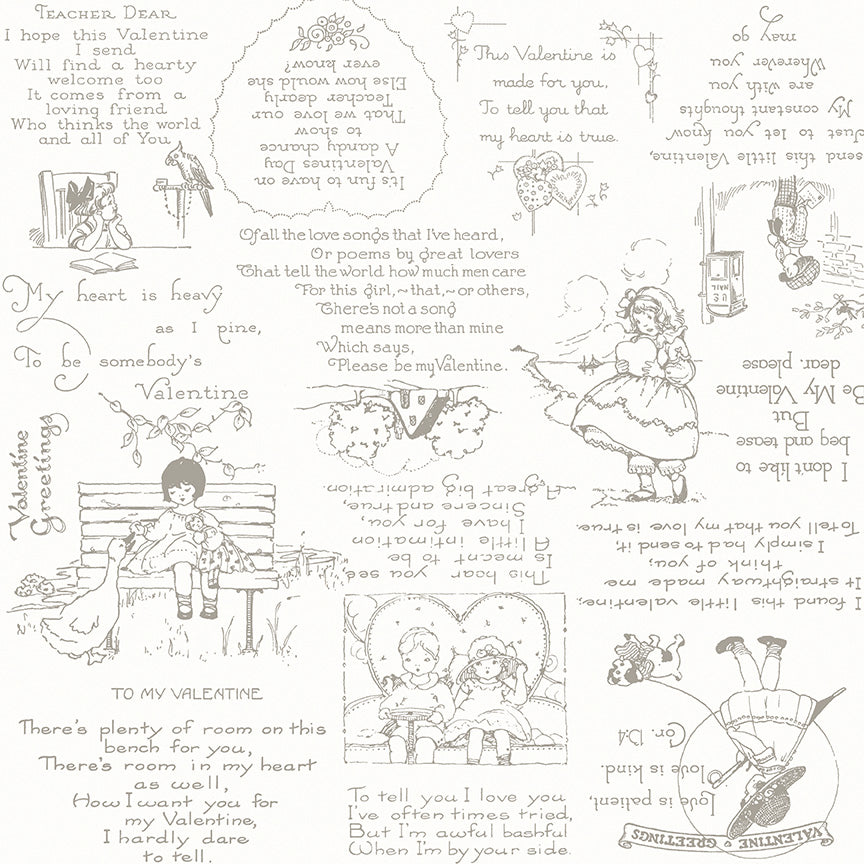 TEACHER DEAR
I hope this Valentine
I send
Will find a hearty
welcome too
It comes from a
loving friend
Who thinks the world
and all of You
It's fun to have on
Valentines Day
A dandy chance
to show
That we love our
Teacher dearly
Else how would she
ever know?
This Valentine is
made for you,
To tell you that
my heart is true.
send this little Valentine,
Just to let you know
My constant thoughts
are with you
Wherever you
may go
U S
MAIL
My heart is heavy
as I pine,
To be somebody's
Valentine
Of all the love songs that I've heard,
Or poems by great lovers
That tell the world how much men care
For this girl, ~ that, ~ or others,
There's not a song
means more than mine
Which says,
Please be my Valentine.
I don't like to
beg and tease
But
Be My Valentine
dear, please
Valentine
Greetings
This hear you see
Is mecnt to be
A little intimation
I have for you,
Sincere and true,
A great big admiration.
I found this little valentine,
It straightway made me
think of you,
I simply had to send it,
To tell you that my love is true.
TO MY VALENTINE
There's plenty of room on this
bench for you,
There's room in my heart
as well,
How I want you for
my Valentine,
I hardly dare
to tell.
To tell you I love you
I've often times tried,
But I'm awful bashful
When I'm by your side.
VALENTINE GREETINGS
Love is patient,
love is kind.
Cor. 13:4